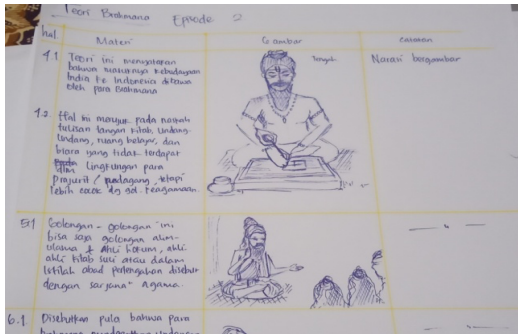 Teori Brahmana Episode 2
hal. Materi Gambar catatan
4.1 Teori ini menyatakan
bahwa masuknya kebudayaan
India ke Indonesia dibawa
oleh para Brahmana
Tengah
Narasi bergambar
4.2. Hal ini merujuk pada naskah
tulisan tangan kitab, undang-
undang, ruang belajar, dan
biara yang tidak terdapat
dlm lingkungan para
prajurit / pedagang, tetapi
lebih cocok dg gol. keagamaan.
5.1 Golongan-golongan ini
bisa saja golongan alim-
ulama & Ahli hukum, ahli
ahli kitab suci atau dalam
Istilah abad pertengahan disebut
dengan sarjana" Agama.
6.1 Disebutkan pula bahwa para